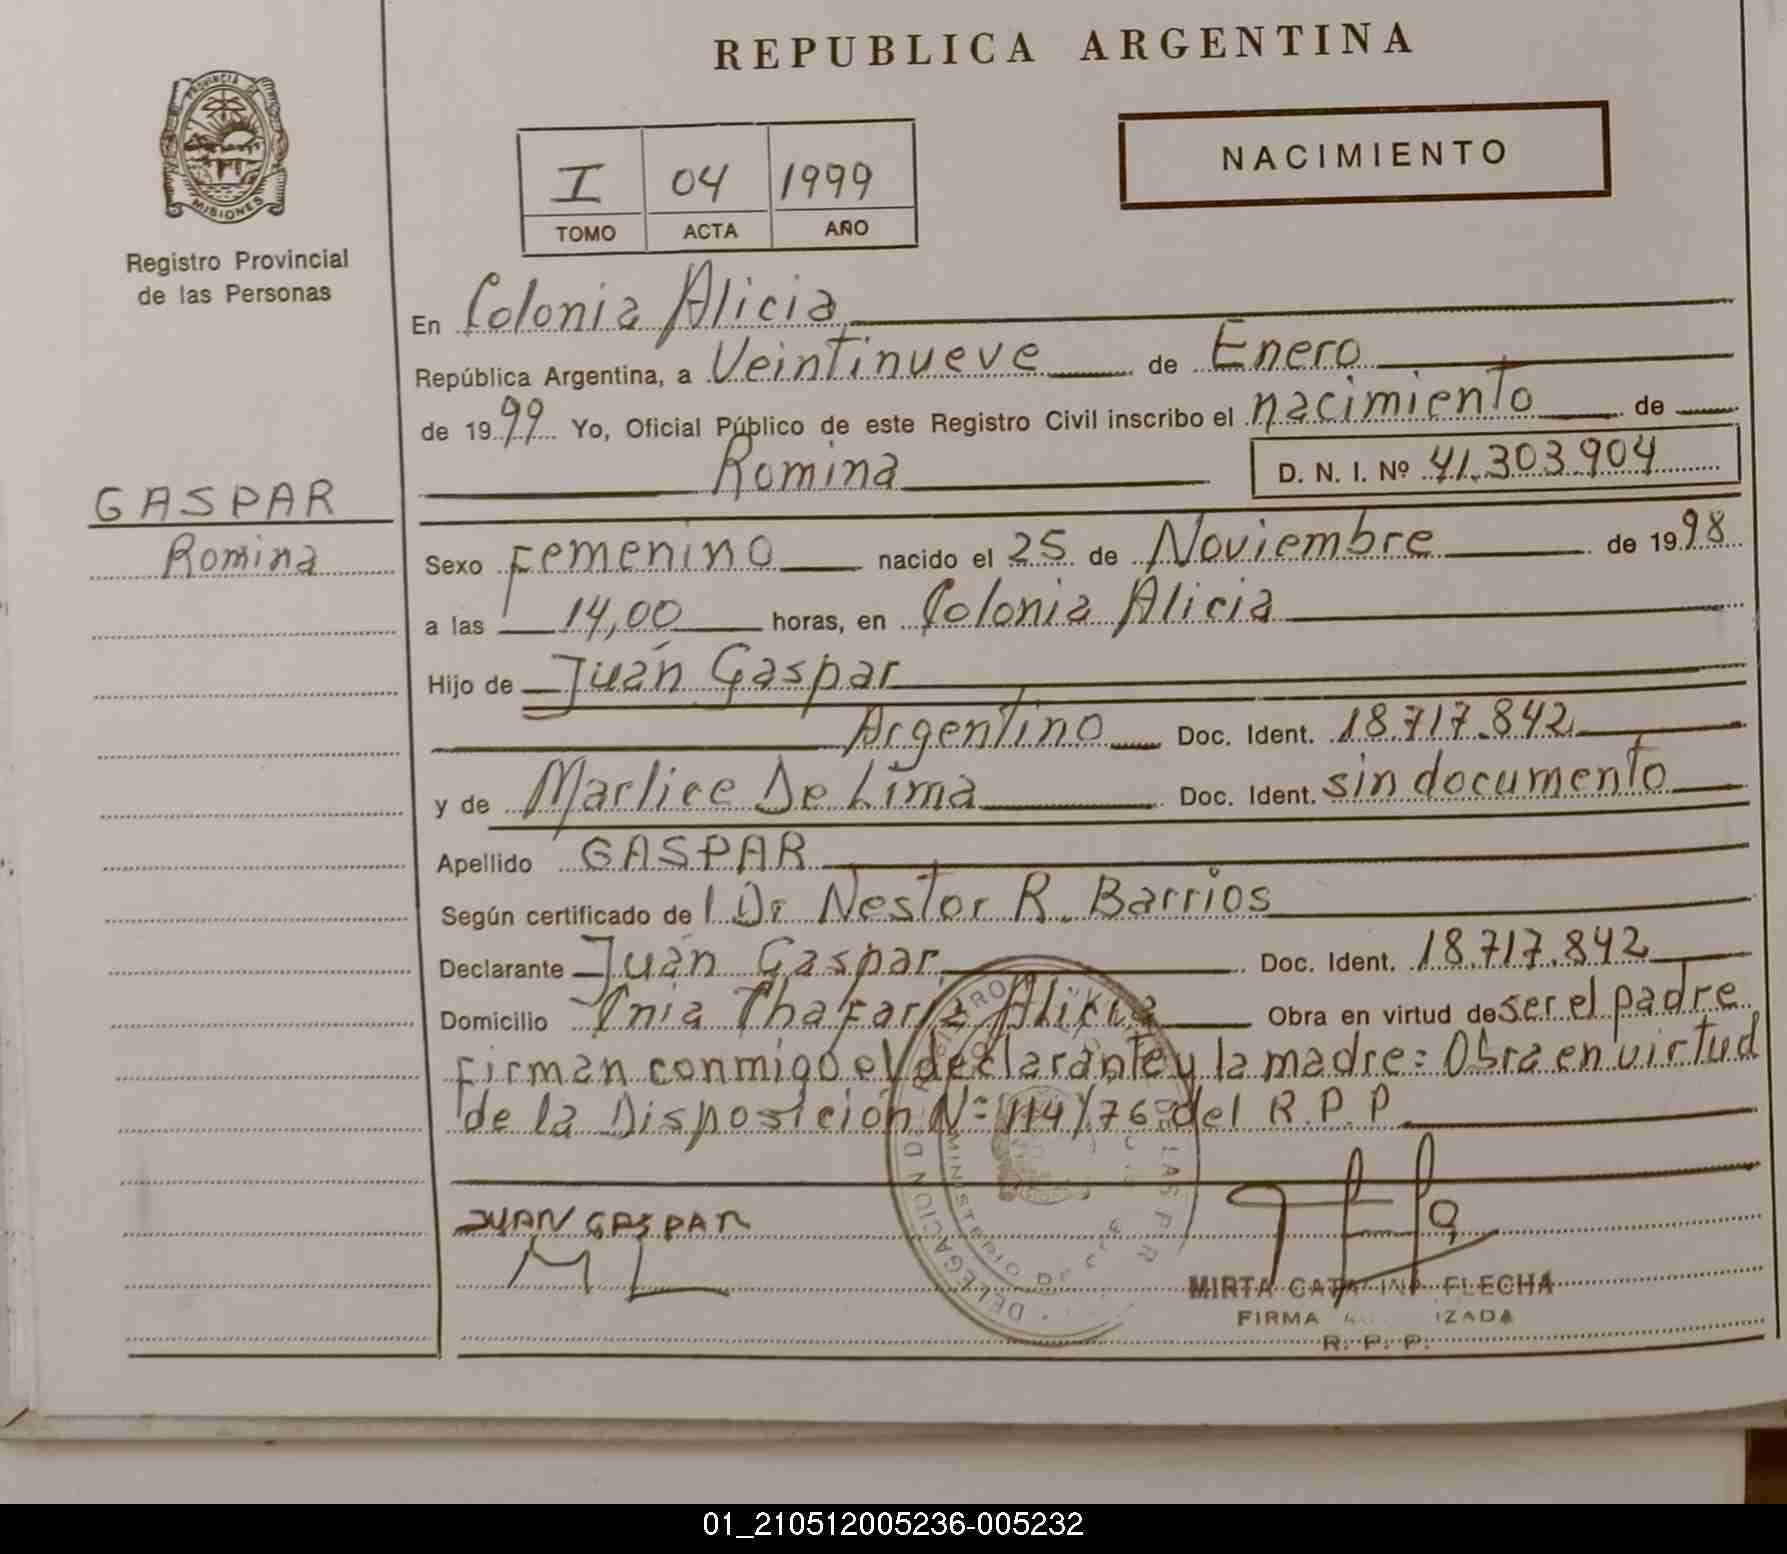 REPUBLICA ARGENTINA
PROVINCIA DE
MISIONES
Registro Provincial
de las Personas
I 04 1999
TOMO ACTA AÑO
NACIMIENTO
En Colonia Alicia
República Argentina, a Veintinueve de Enero
de 1999 Yo, Oficial Público de este Registro Civil inscribo el nacimiento de
Romina D. N. I. Nº 41.303.904
GASPAR
Romina
Sexo Femenino nacido el 25 de Noviembre de 1998
a las 14,00 horas, en Colonia Alicia
Hijo de Juan Gaspar
Argentino Doc. Ident. 18.717.842
y de Marlice De Lima Doc. Ident. sin documento
Apellido GASPAR
Según certificado de Dr Nestor R. Barrios
Declarante Juan Gaspar Doc. Ident. 18.717.842
Domicilio Alicia Obra en virtud de ser el padre
Firman conmigo el declarante y la madre = Obra en virtud
de la Disposicion Nº 114/76 del R.P.P
JUAN GASPAR
M L
DELEGACION
MINISTERIO DE
MIRTA CATALINA FLECHA
FIRMA AUTORIZADA
R. P. P.
01_210512005236-005232